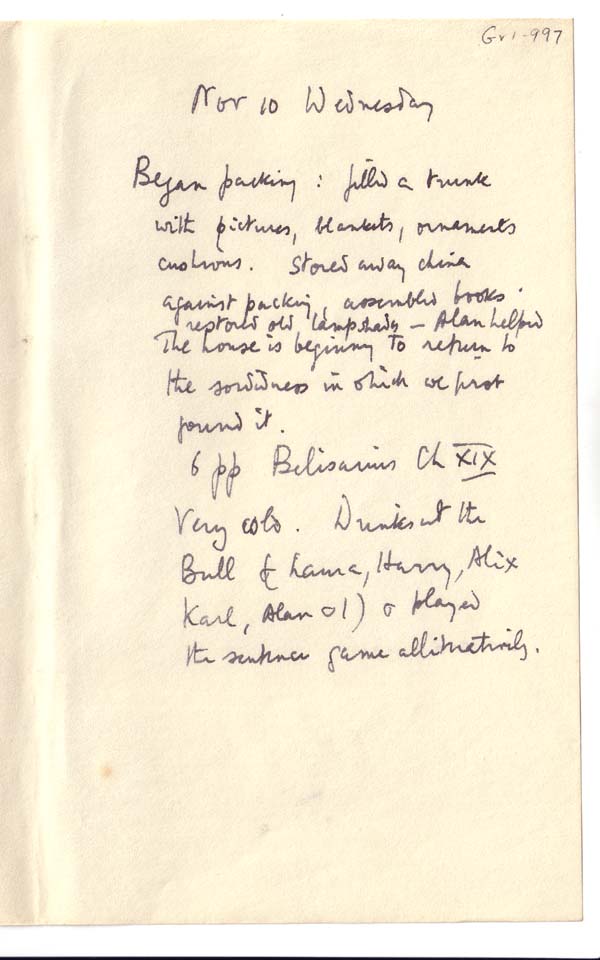 Gr1-997
Nov 10 Wednesday
Began packing : filled a trunk
with pictures, blankets, ornaments
cushions. Stored away china
against packing, assembled books.
restored old lampshades – Alan helped
The house is beginning to return to
the sordidness in which we first
found it.
6 pp Belisarius Ch XIX
Very cold. Drinks at the
Bull (Laura, Harry, Alix
Karl, Alan & I) & played
the sentence game alliteratively.